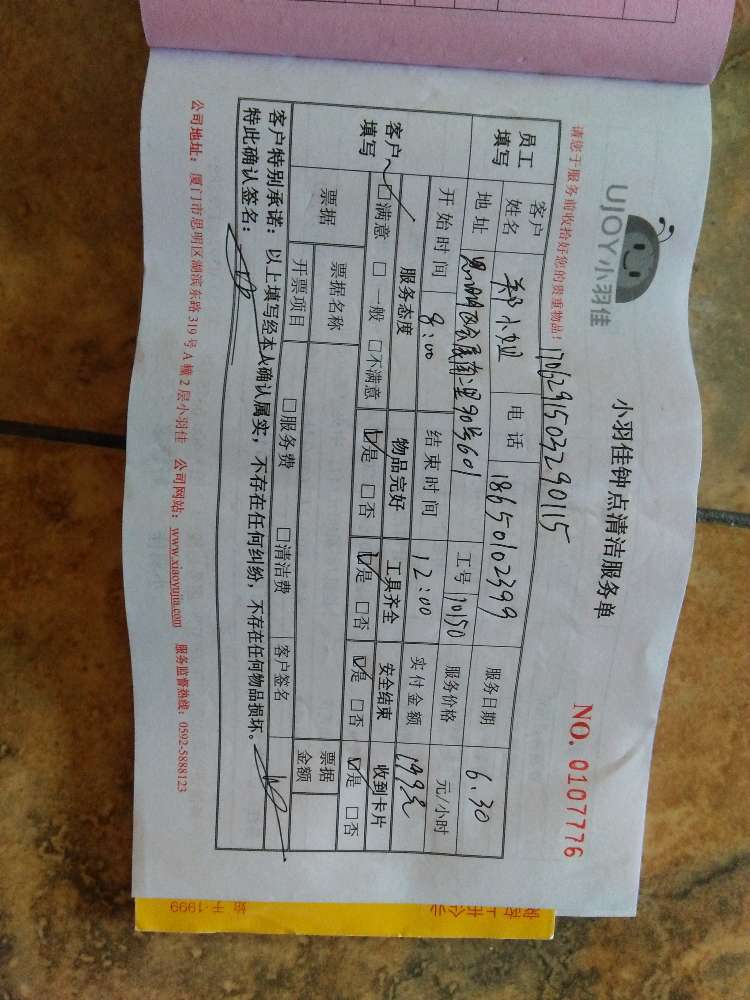 UJOY小羽佳
小羽佳钟点清洁服务单
NO. 0107776
请您于服务前收拾好您的贵重物品！
17062915032290115
员工填写
客户姓名 郑小姐 电话 18650102399 服务日期 6.30
地址 南二里90号601 工号 10150 服务价格 元/小时
开始时间 9:00 结束时间 12:00 实付金额 199元
客户填写
服务态度 物品完好 工具齐全 安全结束 收到卡片
☑满意 □一般 □不满意 ☑是 □否 ☑是 □否 ☑是 □否 ☑是 □否
票据 票据名称 票据金额
开票项目 □服务费 □清洁费 客户签名
客户特别承诺：以上填写经本人确认属实，不存在任何纠纷，不存在任何物品损坏。
特此确认签名：
公司地址：厦门市思明区湖滨东路319号A幢2层小羽佳 公司网站：www.xiaoyujia.com 服务监督热线：0592-5888123